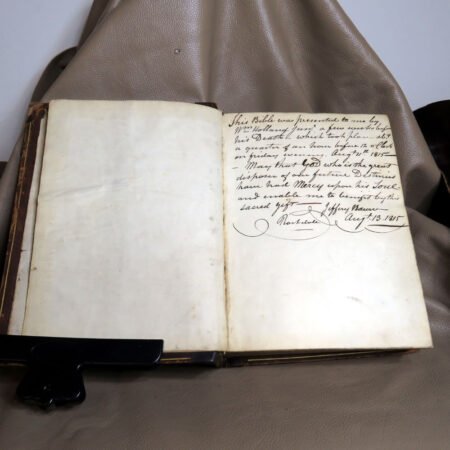 This Bible was presented to me by
Wm Holland Junr a few weeks before
his Death which took place abt
a quarter of an hour before 12 o'Clock
on friday evening Augt 11th 1815 —
— May that God who is the great
disposer of our future Destinies
have had Mercy upon his Soul
and enable me to benefit by this
sacred gift — Jeffery
Rochdale Augt 13. 1815